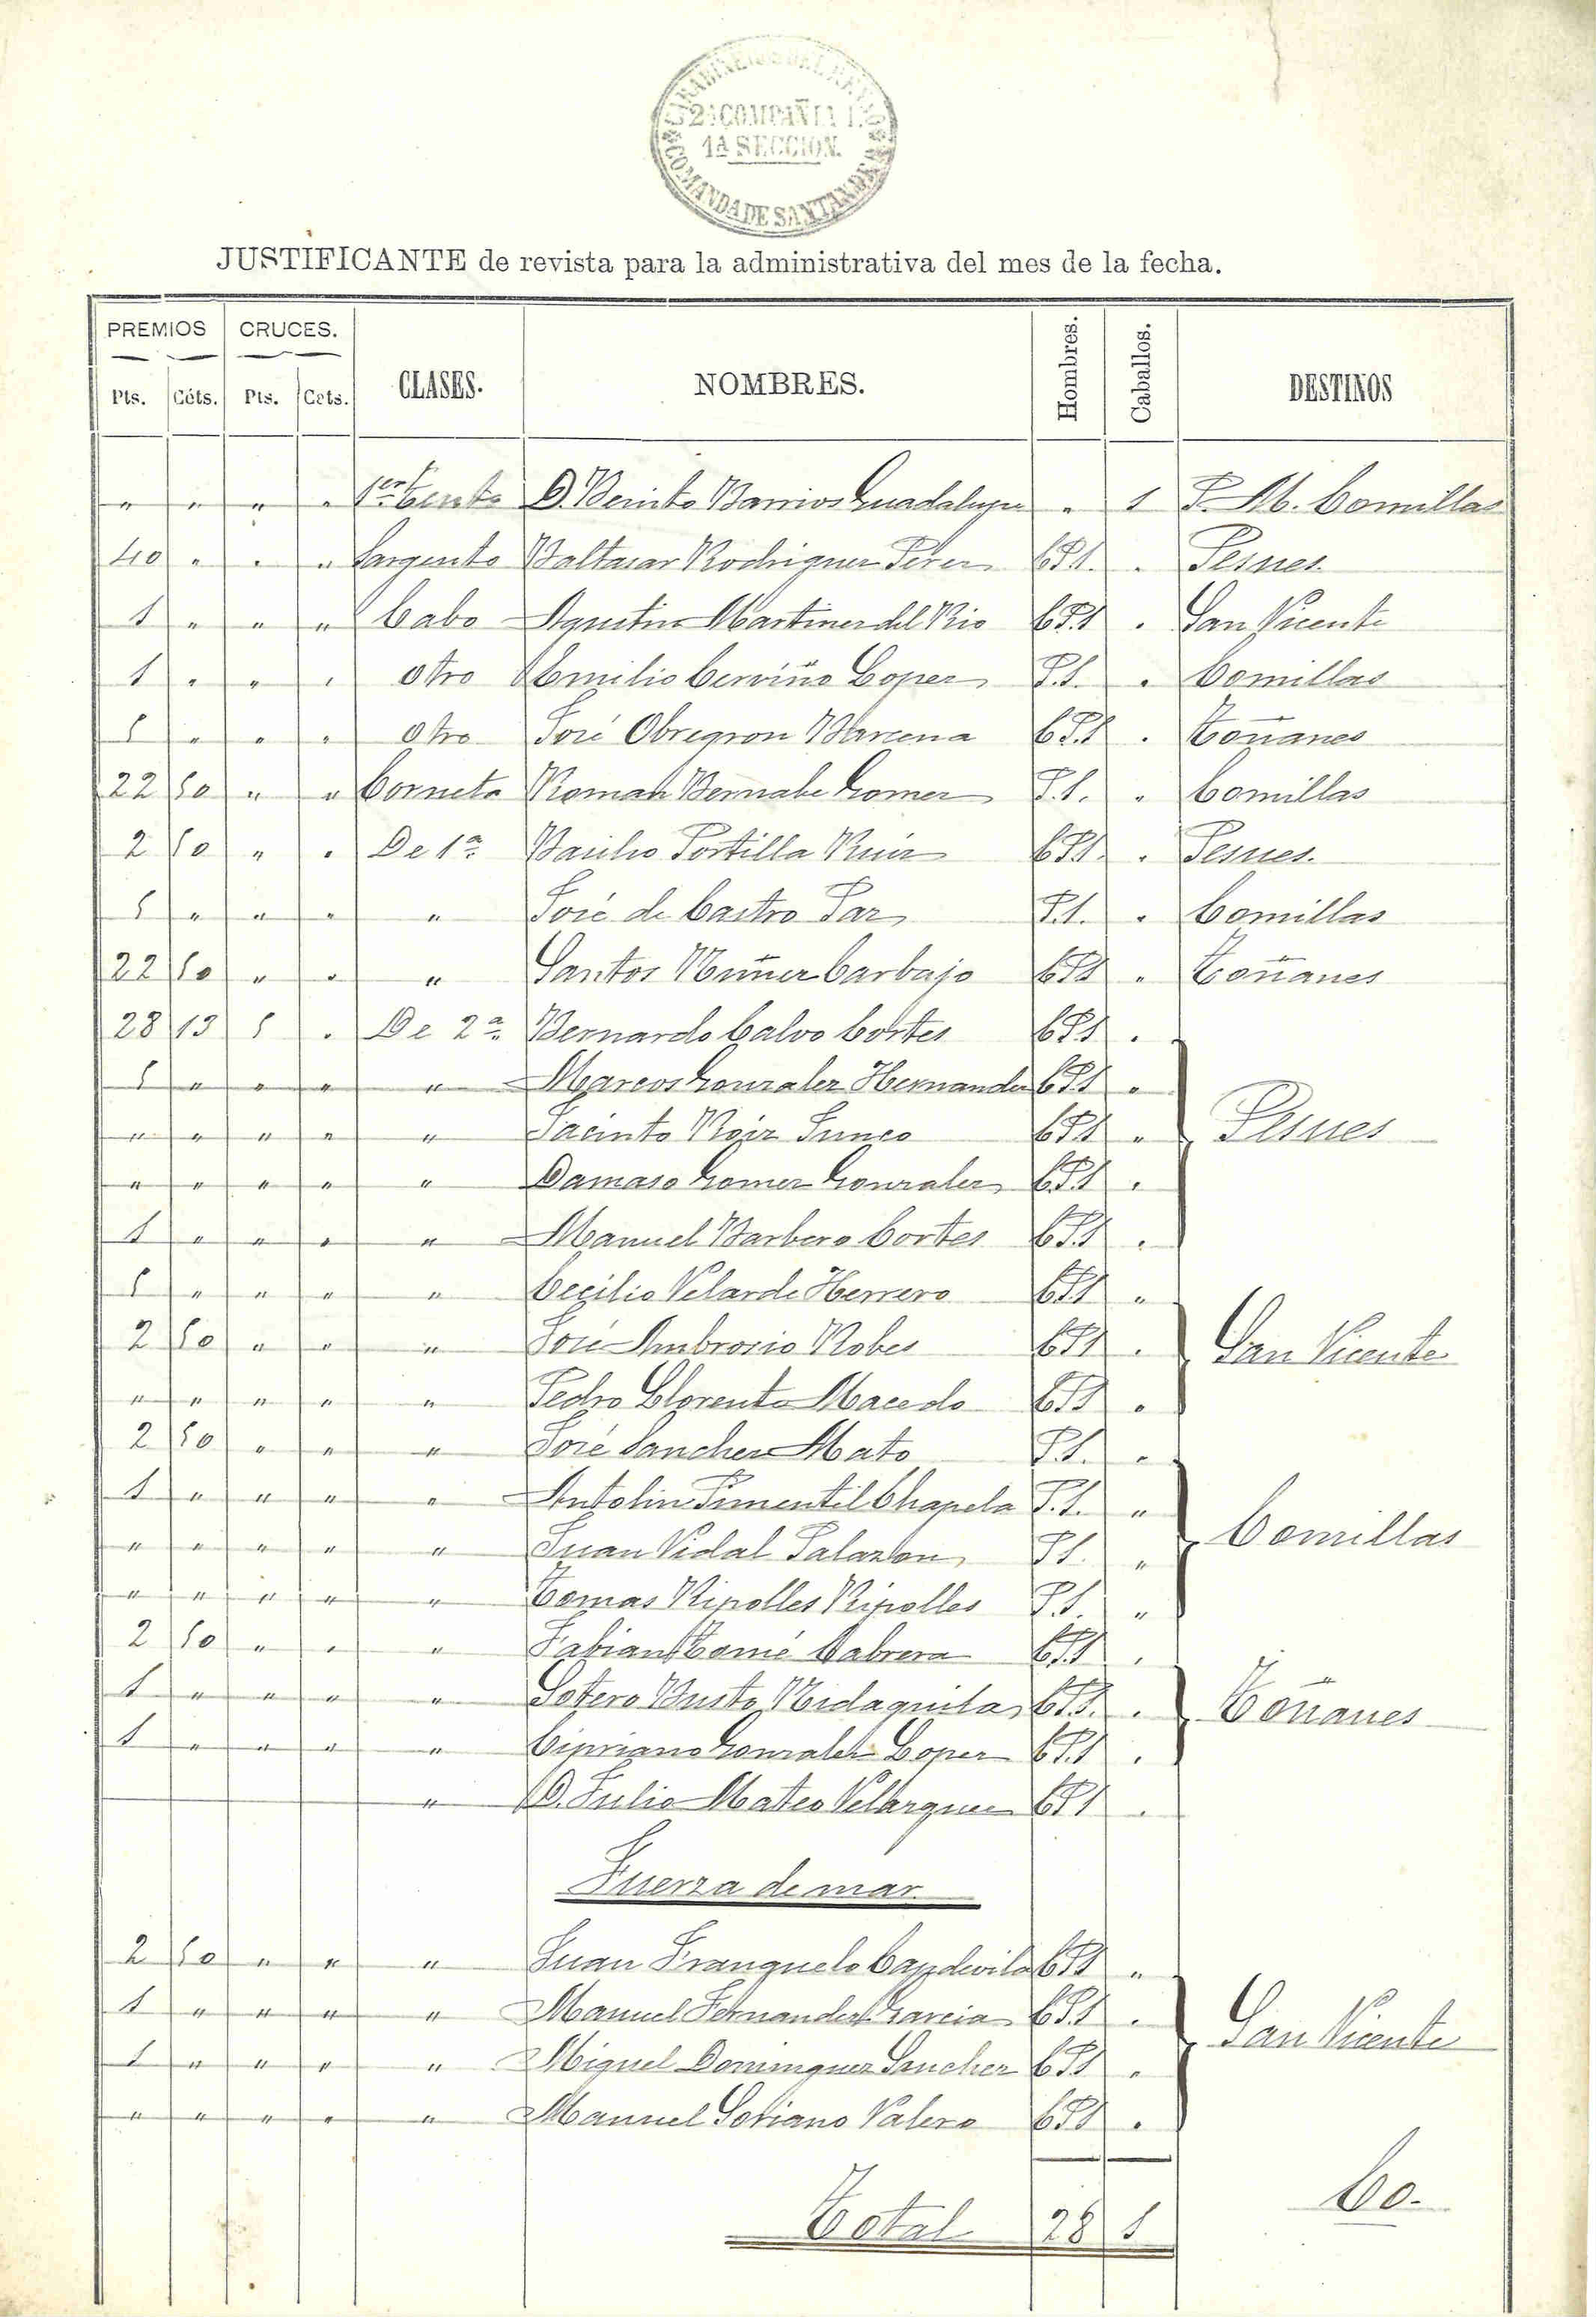 CARABINEROS DEL REYNO
2ª COMPAÑIA
1ª SECCION.
COMANDA DE SANTANDER
JUSTIFICANTE de revista para la administrativa del mes de la fecha.
PREMIOS CRUCES. CLASES. NOMBRES. Hombres. Caballos. DESTINOS
Pts. Cóts. Pts. Cets.
" " " " 1er Tente D. Benito Barrios Guadalupe " 1 P. M. Comillas
40 " " " Sargento Baltasar Rodriguez Perez C P.1. " Pesues.
1 " " " Cabo Agustin Martinez del Rio C P.1 " San Vicente
1 " " " Otro Emilio Cerviño Lopez P.1. " Comillas
5 " " " Otro José Obregron Barcena C P.1 " Toñanes
22 50 " " Corneta Roman Bernabe Gomez P.1. " Comillas
2 50 " " De 1ª Basilio Portilla Ruiz C P.1. " Pesues.
5 " " " " José de Castro Paz P.1. " Comillas
22 50 " " " Santos Nuñez Carbajo C P1 " Toñanes
28 13 5 " De 2ª Bernardo Calvo Cortes C P.1 "
5 " " " " Marcos Gonzalez Hernandez C P.1 "
" " " " " Jacinto Roiz Junco C P1 " Pesues
" " " " " Damaso Gomez Gonzalez C P.1 "
1 " " " " Manuel Barbero Cortes C P.1 "
5 " " " " Cecilio Velarde Herrero C P.1 "
2 50 " " " José Ambrosio Robes C P1 " San Vicente
" " " " " Pedro Llorente Macedo C P1 "
2 50 " " " José Sanchez Mato P.1. "
1 " " " " Antolin Pimentil Chapela P.1. "
" " " " " Juan Vidal Palazon P1. " Comillas
" " " " " Tomas Ripolles Ripolles P.1. "
2 50 " " " Fabian Tomé Cabrera C P.1 "
1 " " " " Sotero Busto Nidaguila C P.1. " Toñanes
1 " " " " Cipriano Gonzalez Lopez C P.1 "
" D. Julio Mateo Velazquez C P1 "
Fuerza de mar
2 50 " " " Juan Franquelo Capdevila C P1 "
1 " " " " Manuel Fernandez Garcia C P.1 "
1 " " " " Miguel Dominguez Sanchez C P1 " San Vicente
" " " " " Manuel Soriano Valero C P1 "
Total 28 1
Co.